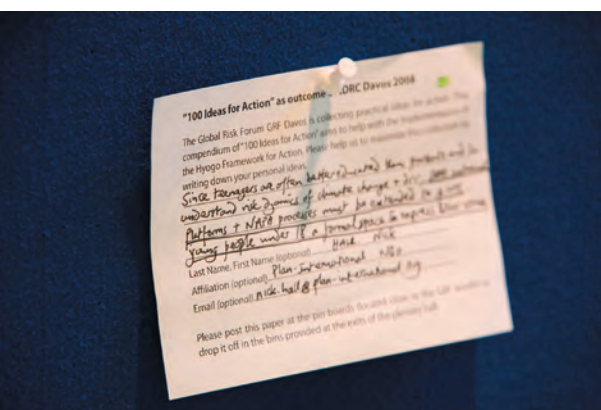 "100 Ideas for Action" as outcome . .DRC Davos 2008
The Global Risk Forum GRF Davos is collecting practical ideas for action. The
compendium of "100 Ideas for Action" aims to help with the implementation of
the Hyogo Framework for Action. Please help us to maximize this collection by
writing down your personal ideas.
Since teenagers are often better educated than parents and
understand risk dynamics of climate change +
Platforms + NAPA processes must be extended to give
young people under 18 a formal space to express their views
Last Name, First Name (optional) HALL Nick
Affiliation (optional) Plan-international NGO
Email (optional) nick.hall@plan-international.org
Please post this paper at the pin boards located close to the GRF
drop it off in the bins provided at the exits of the plenary hall.